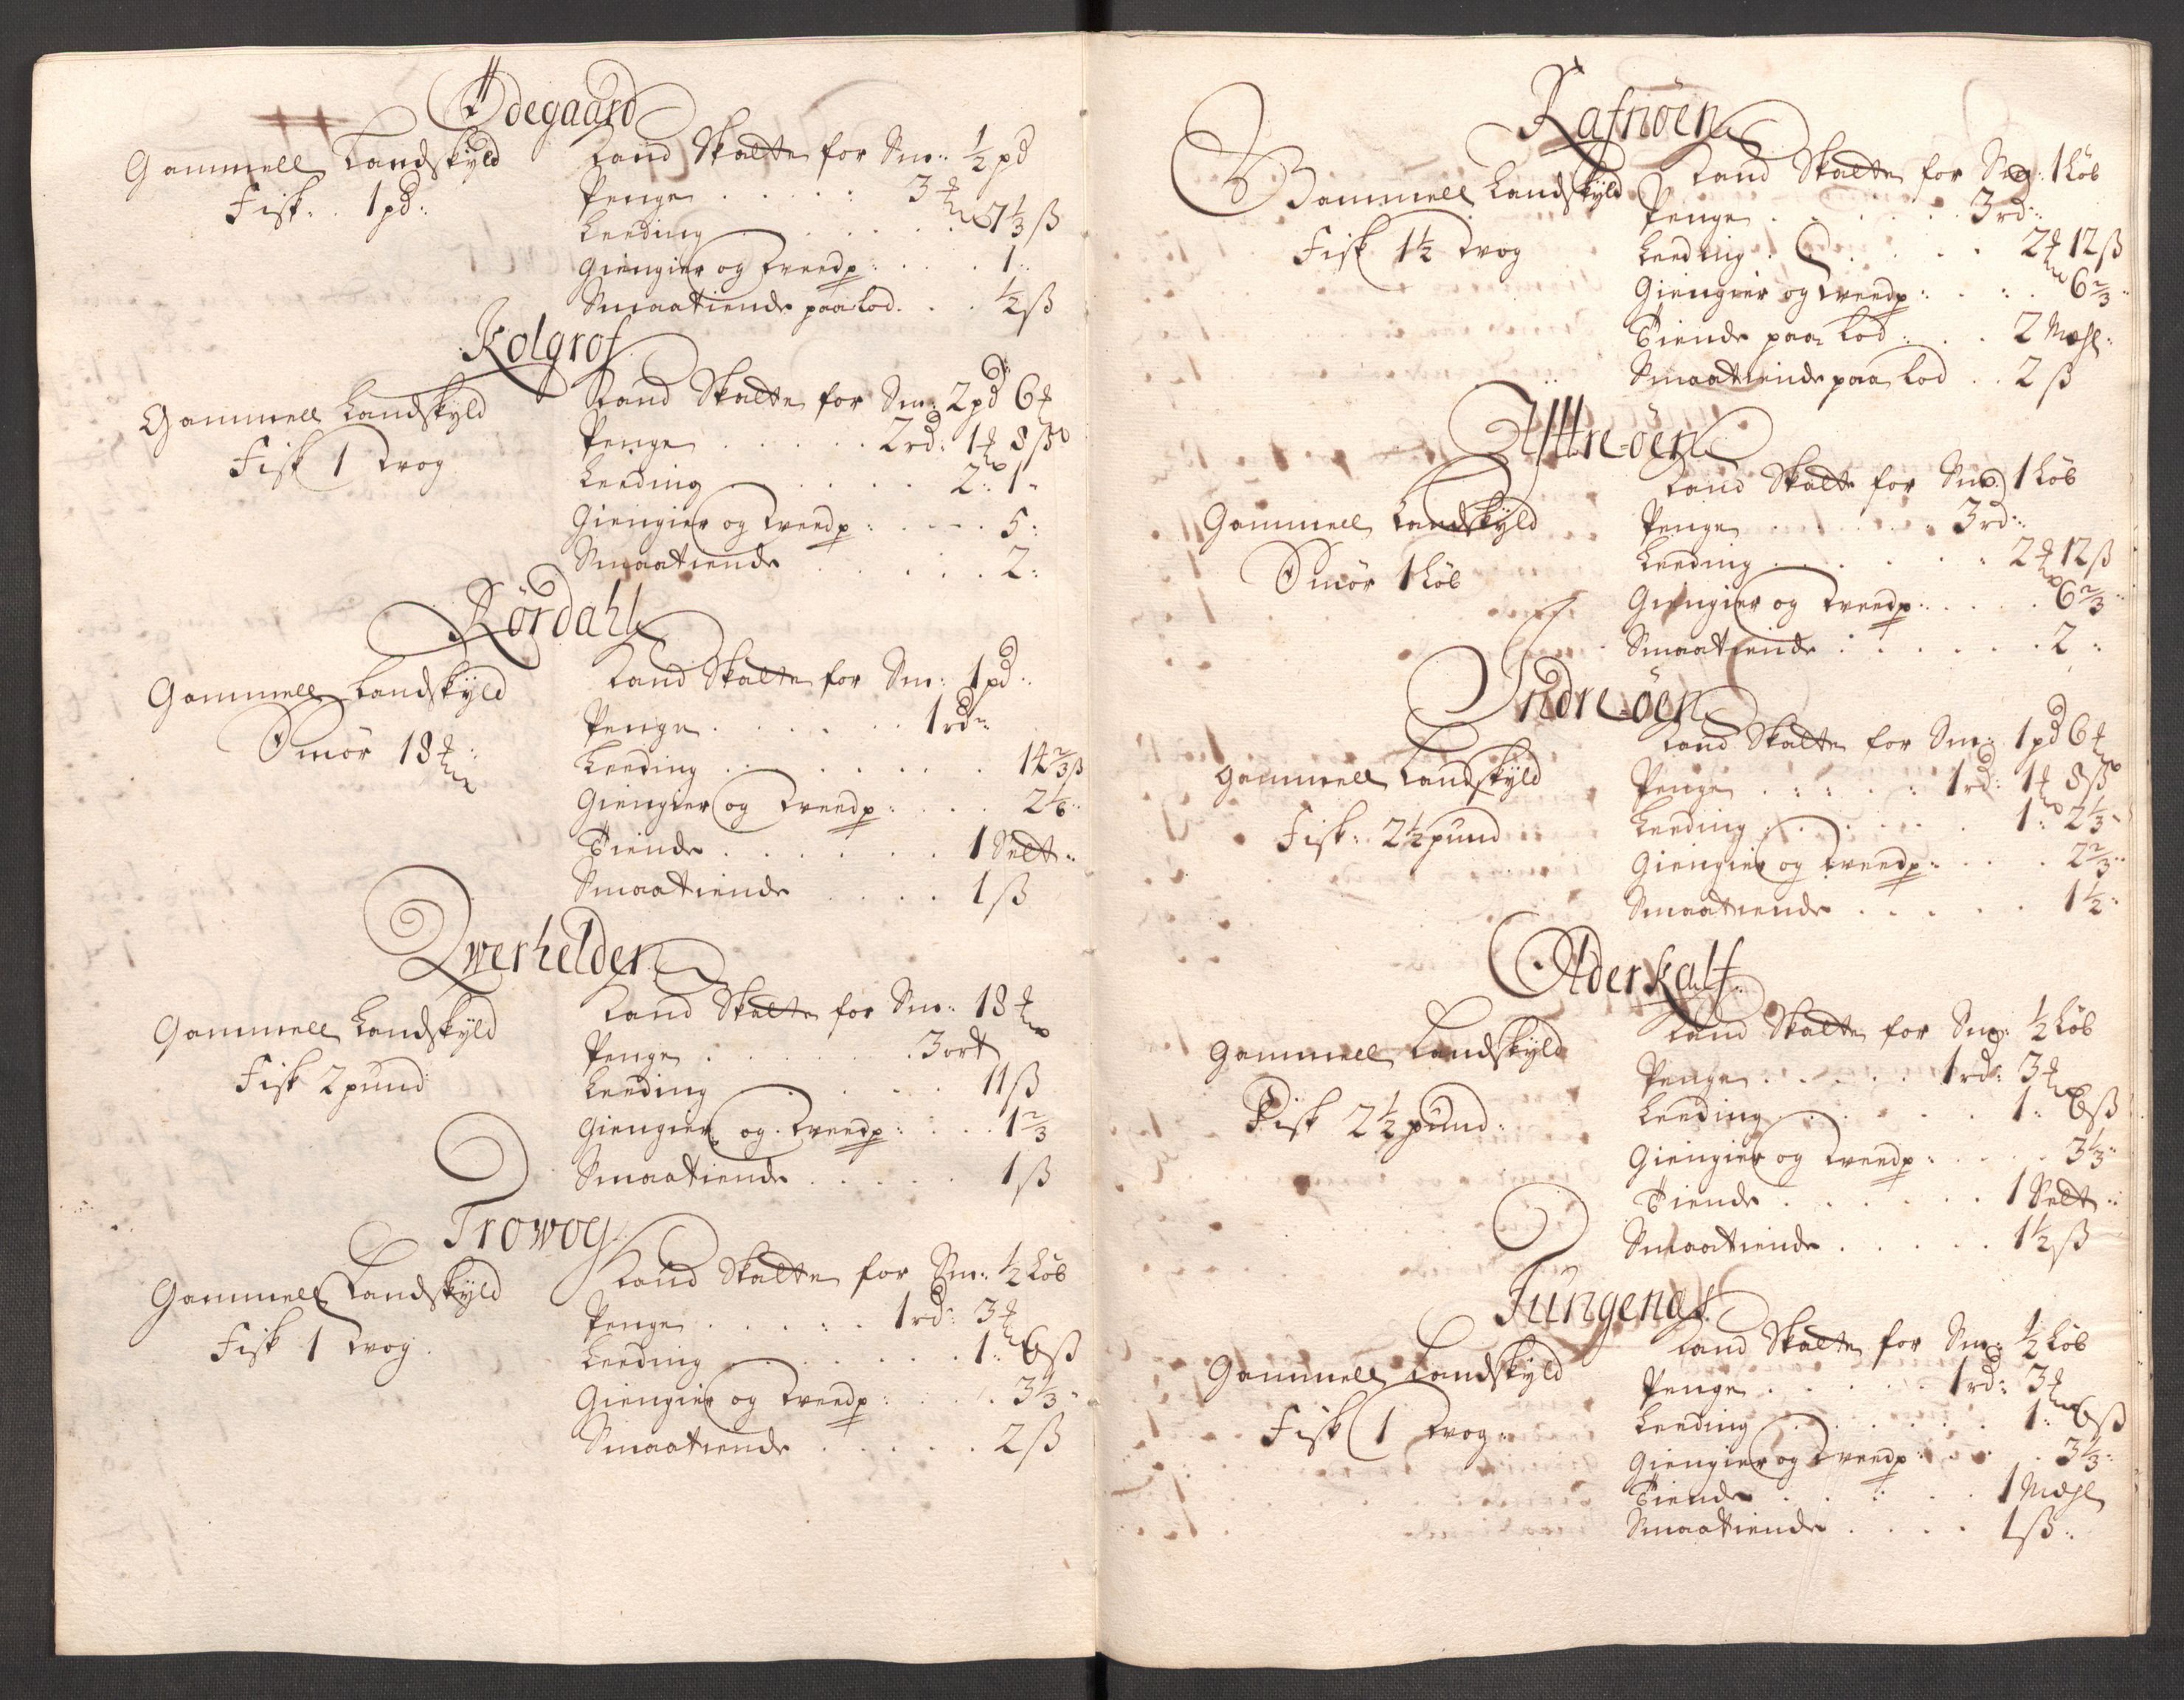 Ødegaard
Gammell Landskyld
Fisk: 1 pd:
Land Skatte for Sm: ½ pd
Penge . . . . 3 ℔
Leeding . . . . 7⅓ ß
Giengier og Treedp: . . . 1:
Smaatiende paa Lod . . ½ ß
Kolgrof
Gammell Landskyld
Fisk 1 Wog
Land Skatte for Sm: 2 pd 6 ℔
Penge . . . . 2 rd: 1 ℔ 8 ß
Leeding . . . . 2: 1:
Giengier og Treedp: . . . 5:
Smaatiende . . . . 2:
Rördahl
Gammell Landskÿld
Smör 18 ℔:
Land Skatte for Sm: 1 pd:
Penge . . . . 1 rd:
Leeding . . . . 14⅔ ß
Giengier og Treedp: . . . 2⅙:
Tiende . . . . 1 Selt:
Smaatiende . . . . 1 ß
Qwerhelder
Gammell Landskÿld
Fisk 2 pund
Land Skatte for Sm: 18 ℔
Penge . . . . 3 ort
Leeding . . . . 11 ß
Giengier og Treedp: . . . 1⅔
Smaatiende . . . . 1 ß
Trowog
Gammell Landskÿld
Fisk 1 Wog
Land Skatte for Sm: ½ Löb
Penge . . . . 1 rd: 3 ℔
Leeding . . . . 1: 6 ß
Giengier og Treedp: . . . 3⅓:
Smaatiende . . . . 2 ß
Rafnöen
Gammell Landskÿld
Fisk 1½ Wog
Land Skatte for Sm: 1 Löb
Penge . . . . 3 rd:
Leeding . . . . 2 ℔ 12 ß
Giengier og Treedp: . . . 6⅔:
Tiende paa Lod . . . 2 Mæhl:
Smaatiende paa Lod . . 2 ß
Ÿttre-öen
Gammell Landskÿld
Smör 1 Löb
Land Skatte for Sm: 1 Löb
Penge . . . . 3 rd:
Leeding . . . . 2 ℔ 12 ß
Giengier og Treedp: . . . 6⅔:
Smaatiende . . . . 2:
Indre-öen
Gammell Landskÿld
Fisk: 2½ pund
Land Skatte for Sm: 1 pd 6 ℔
Penge . . . . 1 rd: 1 ℔ 8 ß
Leeding . . . . 1: 2⅓:
Giengier og Treedp: . . . 2⅔:
Smaatiende . . . . 1½:
Alderkalf
Gammell Landskÿld
Fisk 2½ pund:
Land Skatte for Sm: ½ Löb
Penge . . . . 1 rd: 3 ℔
Leeding . . . . 1: 6 ß
Giengier og Treedp: . . . 3⅓:
Tiende . . . . 1 Selt:
Smaatiende . . . . 1½ ß
Tungenes
Gammell Landskÿld
Fisk 1 Wog:
Land Skatte for Sm: ½ Löb
Penge . . . . 1 rd: 3 ℔
Leeding . . . . 1: 6 ß
Giengier og Treedp: . . . 3⅓:
Tiende . . . . 1 Mæhl
Smaatiende . . . . 1 ß: